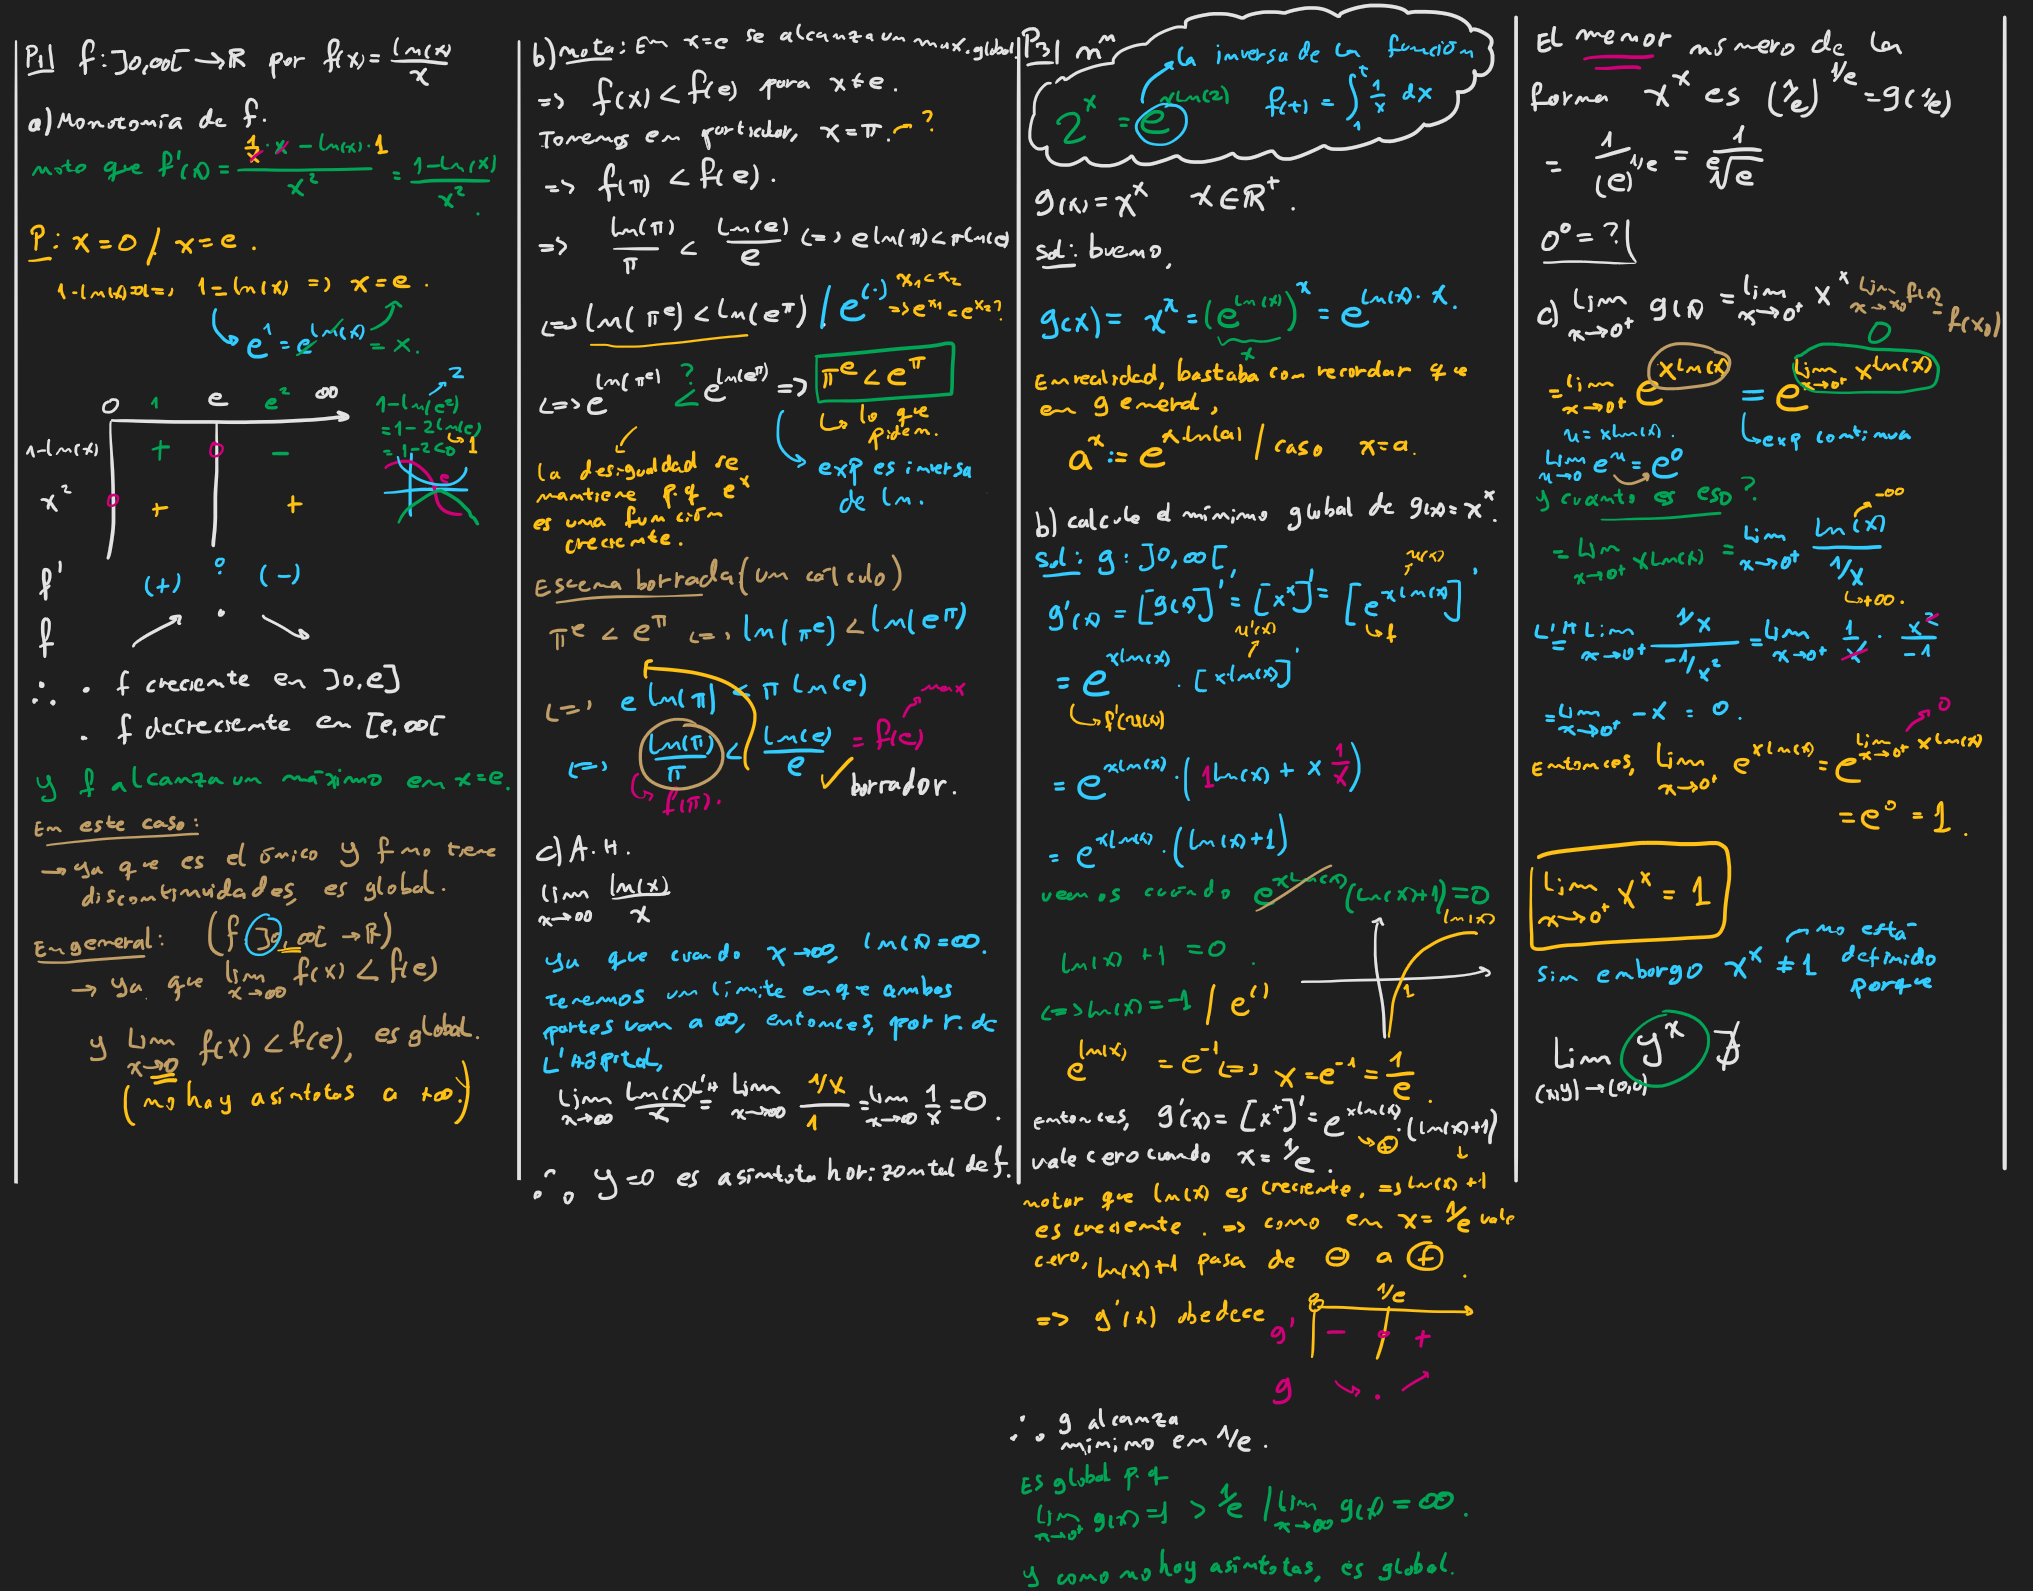 P1| f: ]0,∞[ → ℝ por f(x) = ln(x)/x
a) Monotonía de f.
noto que f'(x) = (1/x · x − ln(x) · 1)/x² = (1 − ln(x))/x².
P: x = 0 / x = e.
1 − ln(x) = 0 => 1 = ln(x) => x = e.
e¹ = e^ln(x) = x.
0 1 e e² ∞
1 − ln(x) + 0 −
x² 0 + +
f' (+) 0 (−)
f
1 − ln(e²) → 2
= 1 − 2 ln(e) → 1
= 1 − 2 < 0
e
∴ • f creciente en ]0, e]
• f decreciente en [e, ∞[
y f alcanza un máximo en x = e.
En este caso:
→ ya que es el único y f no tiene
discontinuidades, es global.
En general: (f ]0, ∞[ → ℝ)
→ ya que lim x→∞ f(x) < f(e)
y lim x→0 f(x) < f(e), es global.
(no hay asíntotas a +∞.)
b) nota: En x = e se alcanza un max. global
=> f(x) < f(e) para x ≠ e.
Tomemos en particular, x = π. → ?
=> f(π) < f(e).
=> ln(π)/π < ln(e)/e <=> e ln(π) < π ln(e)
<=> ln(π^e) < ln(e^π) / e^(·) x₁ < x₂
=> e^x₁ < e^x₂ ?
<=> e^ln(π^e) <? e^ln(e^π) => π^e < e^π
↳ lo que
piden.
la desigualdad se
mantiene p.q e^x
es una función
creciente.
exp es inversa
de ln.
Escena borrada (un cálculo)
π^e < e^π <=> ln(π^e) < ln(e^π)
<=> e ln(π) < π ln(e)
<=> ln(π)/π < ln(e)/e = f(e) → max
↳ f(π). ✓ borrador.
c) A.H.
lim x→∞ ln(x)/x
ya que cuando x→∞, ln(x) = ∞.
Tenemos un límite en que ambos
partes van a ∞, entonces, por r. de
L'Hôpital,
lim x→∞ ln(x)/x =L'H lim x→∞ (1/x)/1 = lim x→∞ 1/x = 0.
∴ y = 0 es asíntota horizontal de f.
P3| nⁿ
la inversa de la función
2^x = e^(x ln(2)) f(t) = ∫₁ᵗ 1/x dx
g(x) = x^x x ∈ ℝ⁺.
sol: bueno,
g(x) = x^x = (e^ln(x))^x = e^(ln(x) · x).
x
En realidad, bastaba con recordar que
en general,
a^x := e^(x·ln(a)) / caso x = a.
b) calcule el mínimo global de g(x) = x^x.
sol: g: ]0, ∞[,
g'(x) = [g(x)]' = [x^x]' = [e^(x ln(x))]'
u(x)
↳ f
= e^(x ln(x)) · [x·ln(x)]'
u'(x)
↳ f'(u(x))
= e^(x ln(x)) · (1 ln(x) + x 1/x)
= e^(x ln(x)) · (ln(x) + 1)
veamos cuándo e^(x ln(x)) (ln(x)+1) = 0
ln(x)
1
ln(x) + 1 = 0.
<=> ln(x) = −1 / e^( )
e^ln(x) = e⁻¹ <=> x = e⁻¹ = 1/e.
entonces, g'(x) = [x^x]' = e^(x ln(x)) · (ln(x)+1)
↳ ⊕
vale cero cuando x = 1/e.
notar que ln(x) es creciente. => ln(x) + 1
es creciente. => como en x = 1/e vale
cero, ln(x)+1 pasa de ⊖ a ⊕.
=> g'(x) obedece
0 1/e
g' − 0 +
g
∴ g alcanza
mínimo en 1/e.
Es global p.q
lim x→0⁺ g(x) = 1 > 1/e / lim x→∞ g(x) = ∞.
y como no hay asíntotas, es global.
El menor número de la
forma x^x es (1/e)^(1/e) = g(1/e)
= 1/(e)^(1/e) = 1/ᵉ√e
0⁰ = ?|
c) lim x→0⁺ g(x) = lim x→0⁺ x^x lim x→x₀ f(x) = f(x₀)
= lim x→0⁺ e^(x ln(x)) = e^(lim x→0⁺ x ln(x)) 0
↳ exp continua
u = x ln(x).
lim u→0 e^u = e⁰
y cuánto es eso?
= lim x→0⁺ x ln(x) = lim x→0⁺ ln(x)/(1/x)
−∞
↳ +∞.
L'H = lim x→0⁺ (1/x)/(−1/x²) = lim x→0⁺ 1/x · x²/−1
= lim x→0⁺ −x = 0.
Entonces, lim x→0⁺ e^(x ln(x)) = e^(lim x→0⁺ x ln(x)) 0
= e⁰ = 1.
lim x→0⁺ x^x = 1
Sin embargo x^x ≠ 1 no está
definido
porque
lim (x,y)→(0,0) y^x ∄